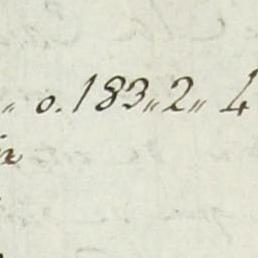 „ o. 183„ 2„ 4